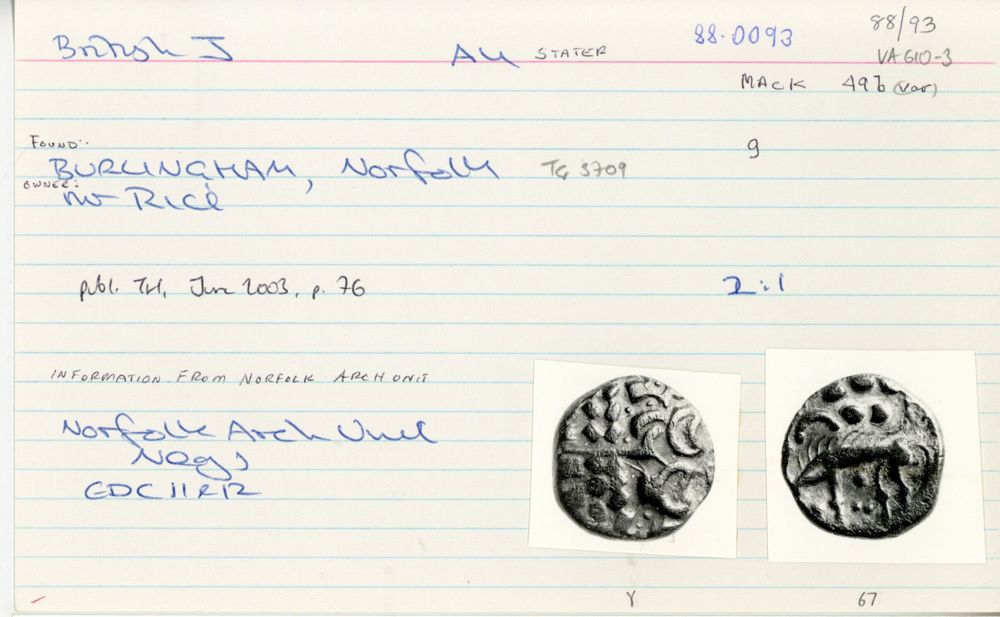 British J AU STATER 88.0093 88/93
VA 610-3
MACK 49b (var)
FOUND:
BURLINGHAM, Norfolk TG 3709 9
OWNER:
Mr Rice
publ. TH, June 2003, p. 76 2:1
INFORMATION FROM NORFOLK ARCH UNIT
Norfolk Arch Unit
Negs
11 R12
Y 67